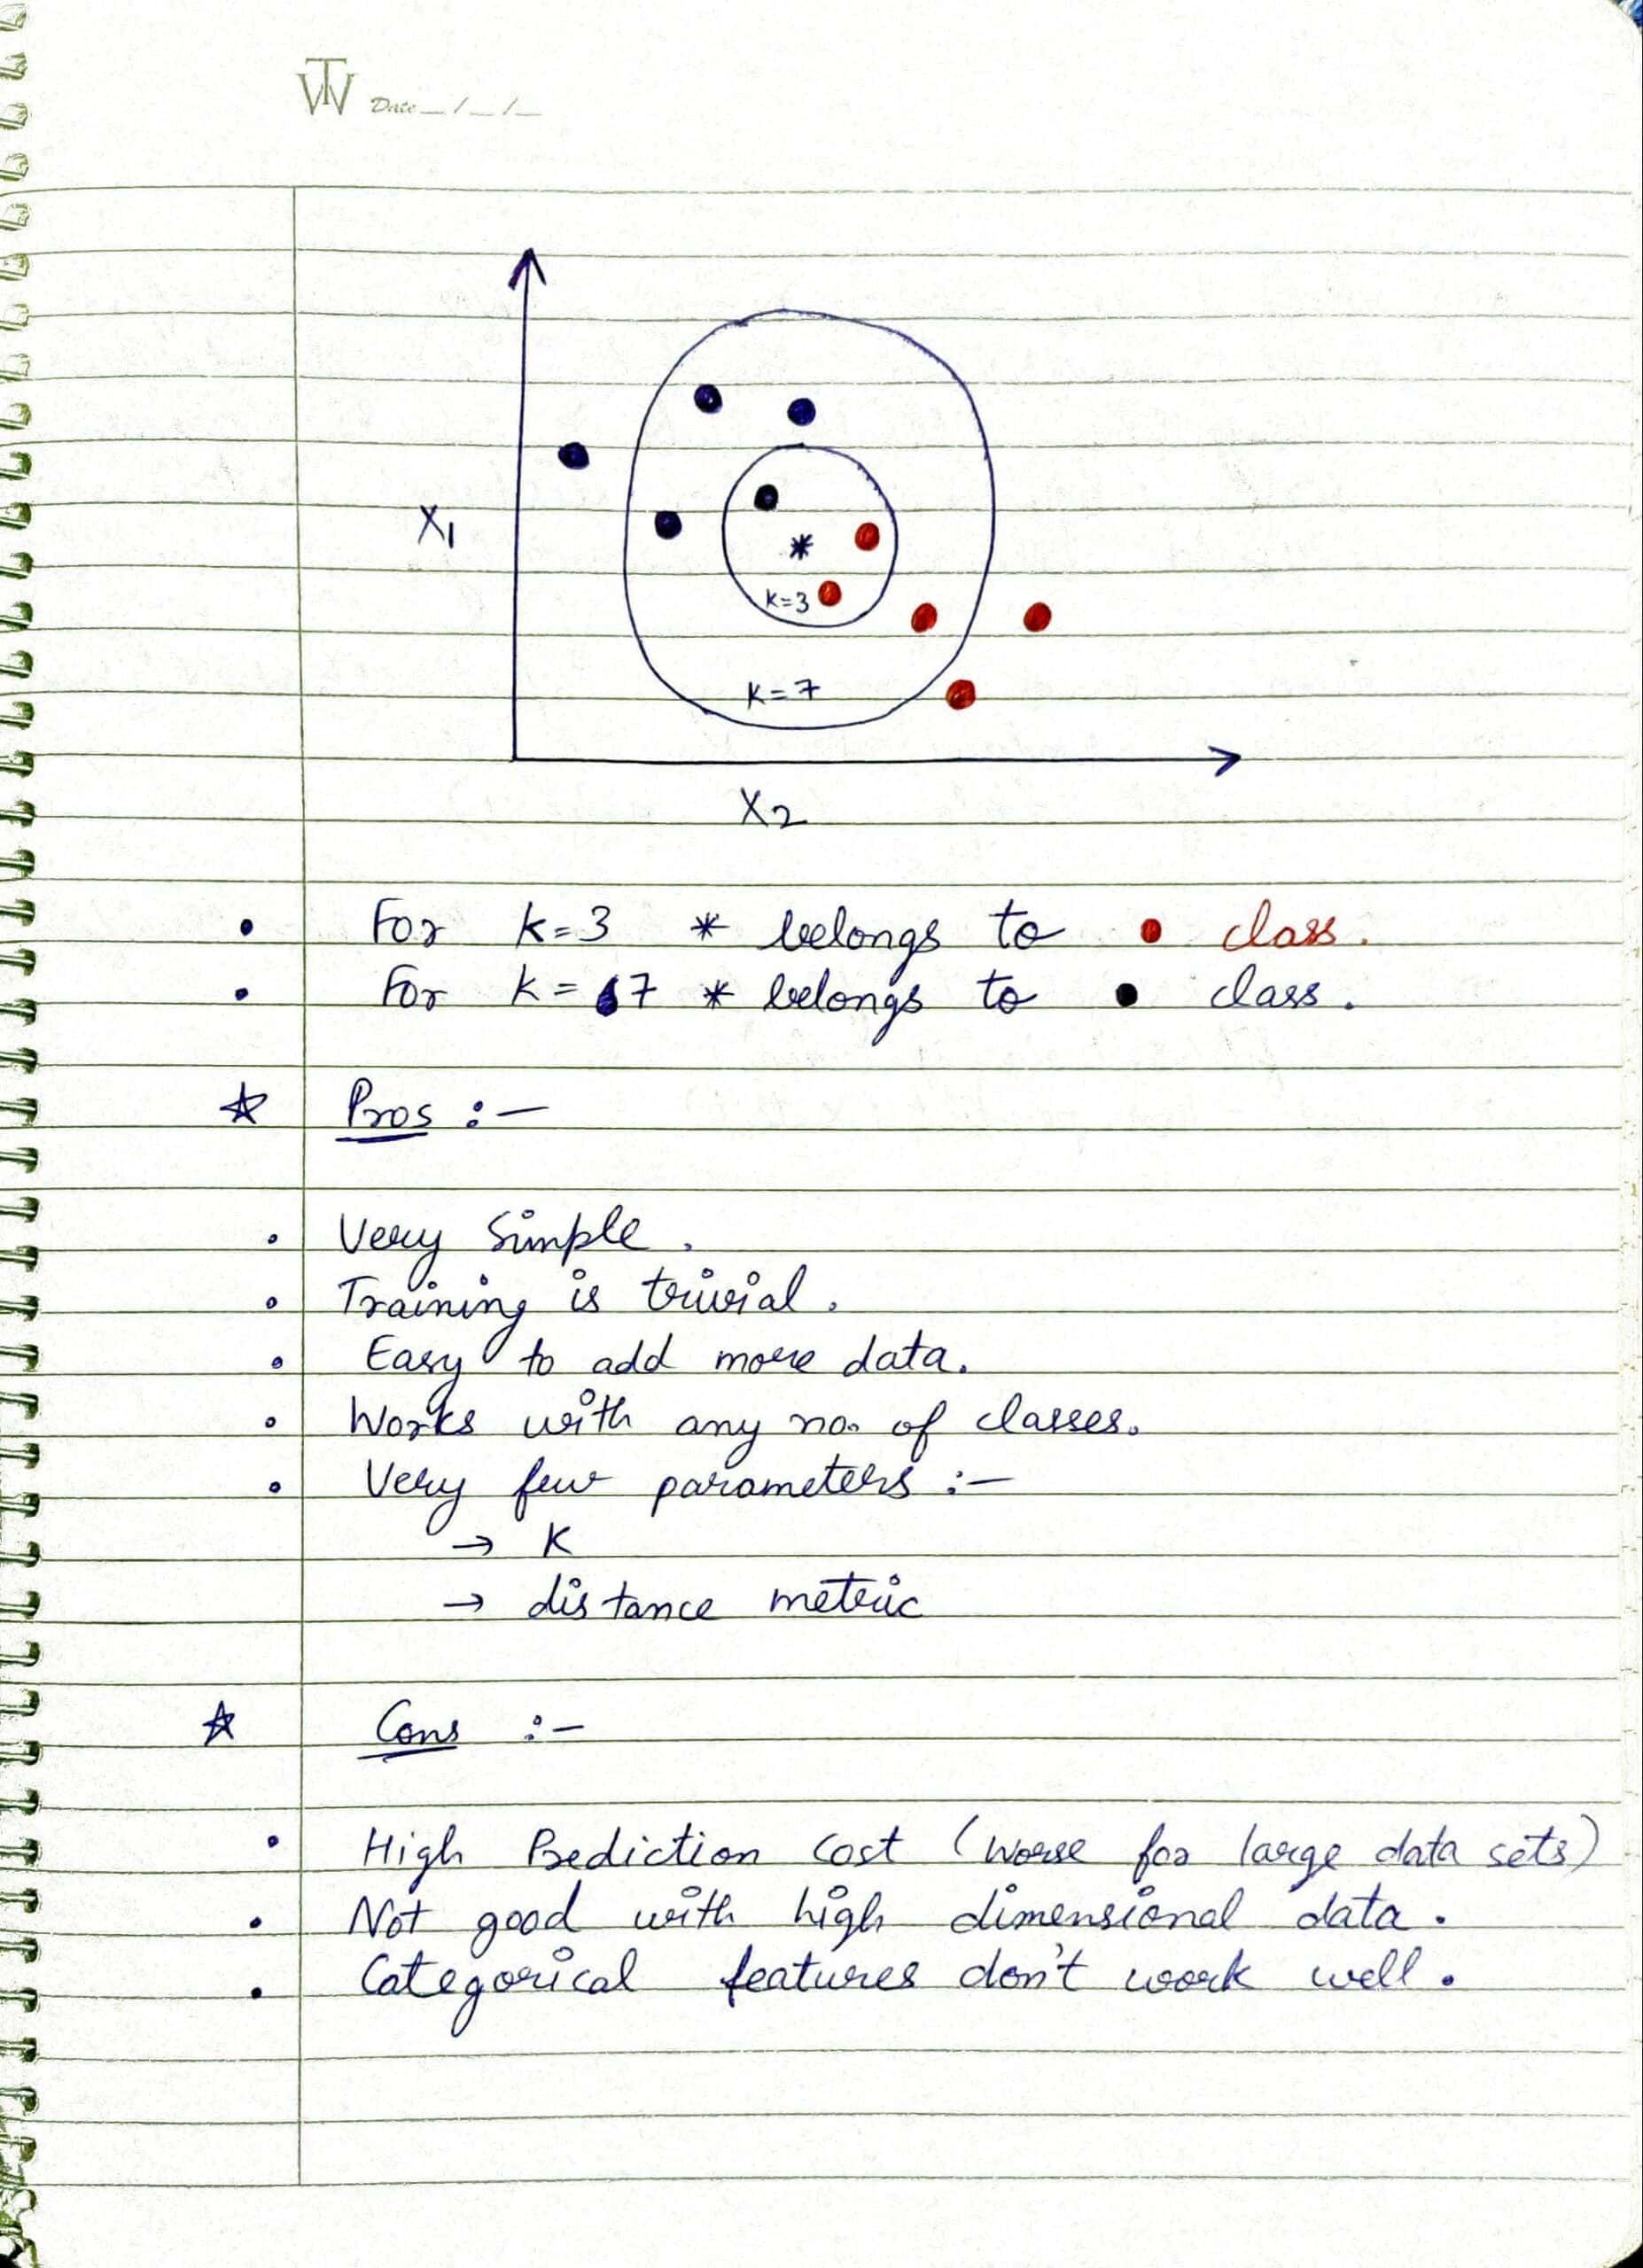 WTN Date _ / _ / _
X₁
K=3
K=7
X₂
• For K=3 * belongs to • class.
• For K=7 * belongs to • class.
☆ Pros :-
• Very Simple.
• Training is trivial.
• Easy to add more data.
• Works with any no. of classes.
• Very few parameters :-
→ K
→ distance metric
☆ Cons :-
• High Prediction Cost (worse for large data sets)
• Not good with high dimensional data.
• Categorical features don't work well.